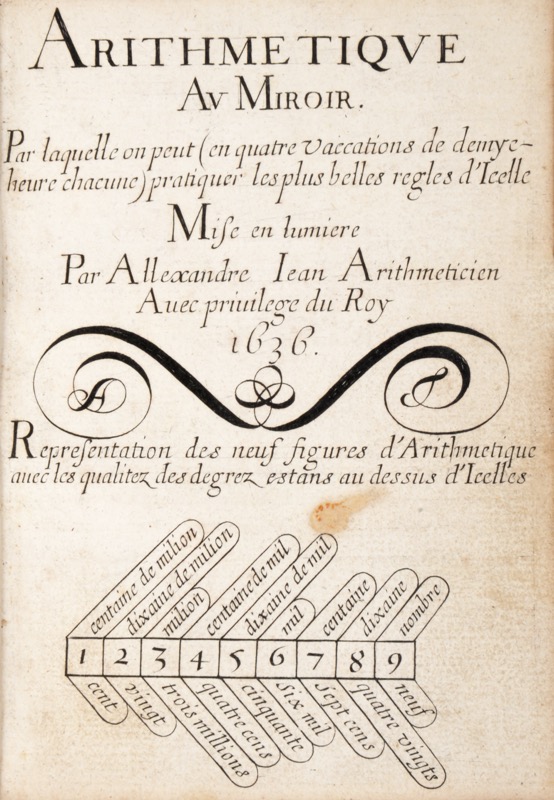 ARITHMETIQVE
AV MIROIR.
Par laquelle on peut (en quatre vaccations de demye-
heure chacune) pratiquer les plus belles regles d'Icelle
Mise en lumiere
Par Allexandre Iean Arithmeticien
Auec priuilege du Roy
1636.
A I
Representation des neuf figures d'Arithmetique
auec les qualitez des degrez estans au dessus d'Icelles
centaine de milion
dixaine de milion
milion
centaine de mil
dixaine de mil
mil
centaine
dixaine
nombre
1 2 3 4 5 6 7 8 9
cent
vingt
trois millions
quatre cens
cinquante
Six mil
Sept cens
quatre vingts
neuf